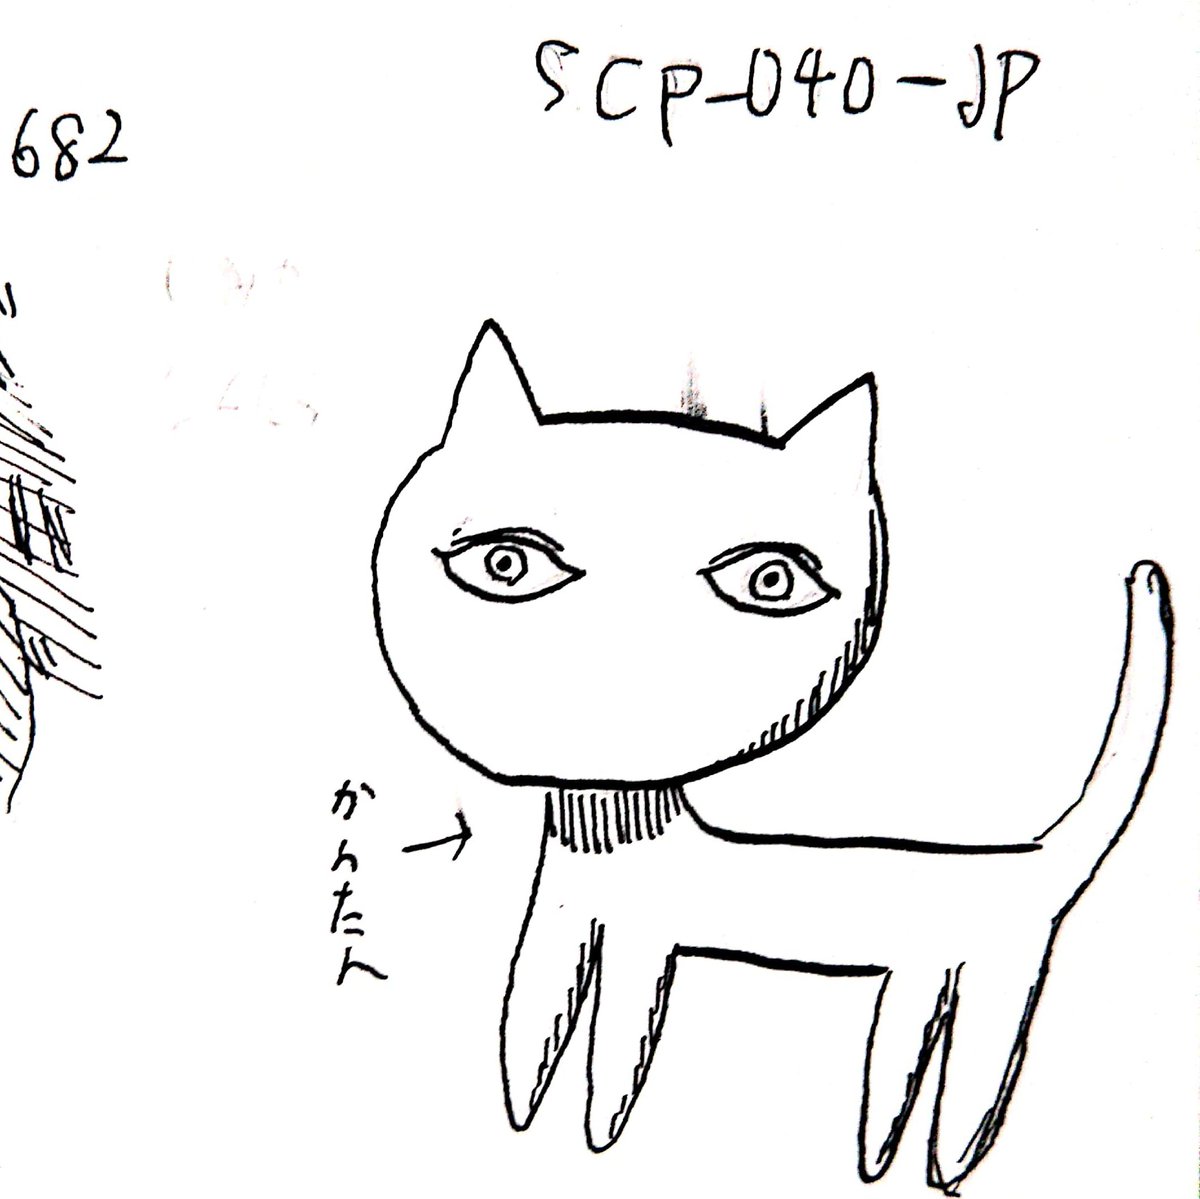 SCP-040-JP
682
かんたん